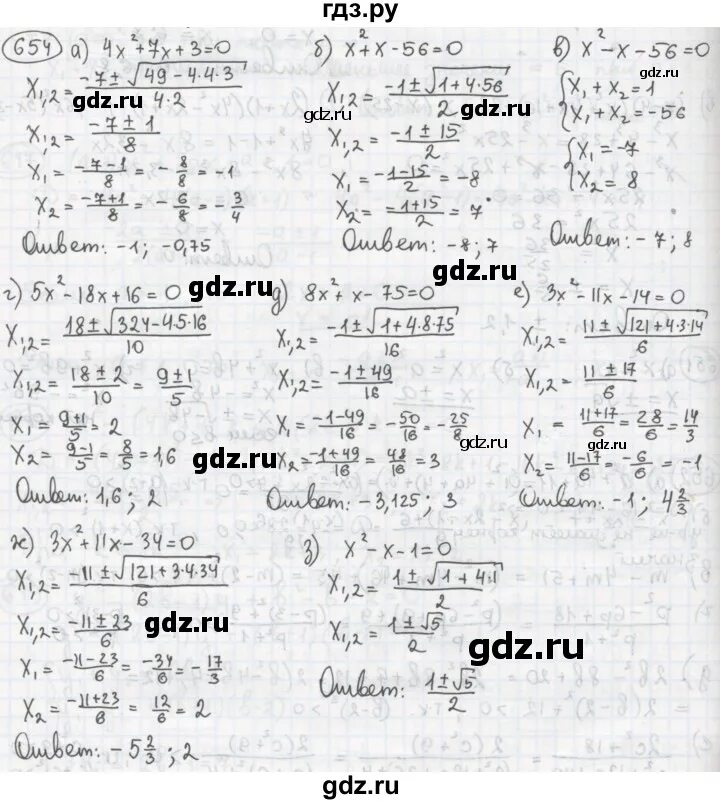 гдз.ру
654 а) 4x²+7x+3=0
x₁,₂ = (-7±√(49-4·4·3))/(4·2)
x₁,₂ = (-7±1)/8
x₁ = (-7-1)/8 = -8/8 = -1
x₂ = (-7+1)/8 = -6/8 = -3/4
Ответ: -1; -0,75
б) x²+x-56=0
x₁,₂ = (-1±√(1+4·56))/2
x₁,₂ = (-1±15)/2
x₁ = (-1-15)/2 = -8
x₂ = (-1+15)/2 = 7
Ответ: -8; 7
в) x²-x-56=0
{x₁+x₂=1
{x₁+x₂=-56
{x₁=-7
{x₂=8
Ответ: -7; 8
г) 5x²-18x+16=0
x₁,₂ = (18±√(324-4·5·16))/10
x₁,₂ = (18±2)/10 = (9±1)/5
x₁ = (9+1)/5 = 2
x₂ = (9-1)/5 = 8/5 = 1,6
Ответ: 1,6; 2
д) 8x²+x-75=0
x₁,₂ = (-1±√(1+4·8·75))/16
x₁,₂ = (-1±49)/16
x₁ = (-1-49)/16 = -50/16 = -25/8
x₂ = (-1+49)/16 = 48/16 = 3
Ответ: -3,125; 3
е) 3x²-11x-14=0
x₁,₂ = (11±√(121+4·3·14))/6
x₁,₂ = (11±17)/6
x₁ = (11+17)/6 = 28/6 = 14/3
x₂ = (11-17)/6 = -6/6 = -1
Ответ: -1; 4 2/3
ж) 3x²+11x-34=0
x₁,₂ = (-11±√(121+3·4·34))/6
x₁,₂ = (-11±23)/6
x₁ = (-11-23)/6 = -34/6 = -17/3
x₂ = (-11+23)/6 = 12/6 = 2
Ответ: -5 2/3; 2
з) x²-x-1=0
x₁,₂ = (1±√(1+4·1))/2
x₁,₂ = (1±√5)/2
Ответ: (1±√5)/2
gdz.ru
gdz.ru
gdz.ru
gdz.ru
gdz.ru
gdz.ru
gdz.ru
gdz.ru
gdz.ru
gdz.ru
gdz.ru
gdz.ru
gdz.ru